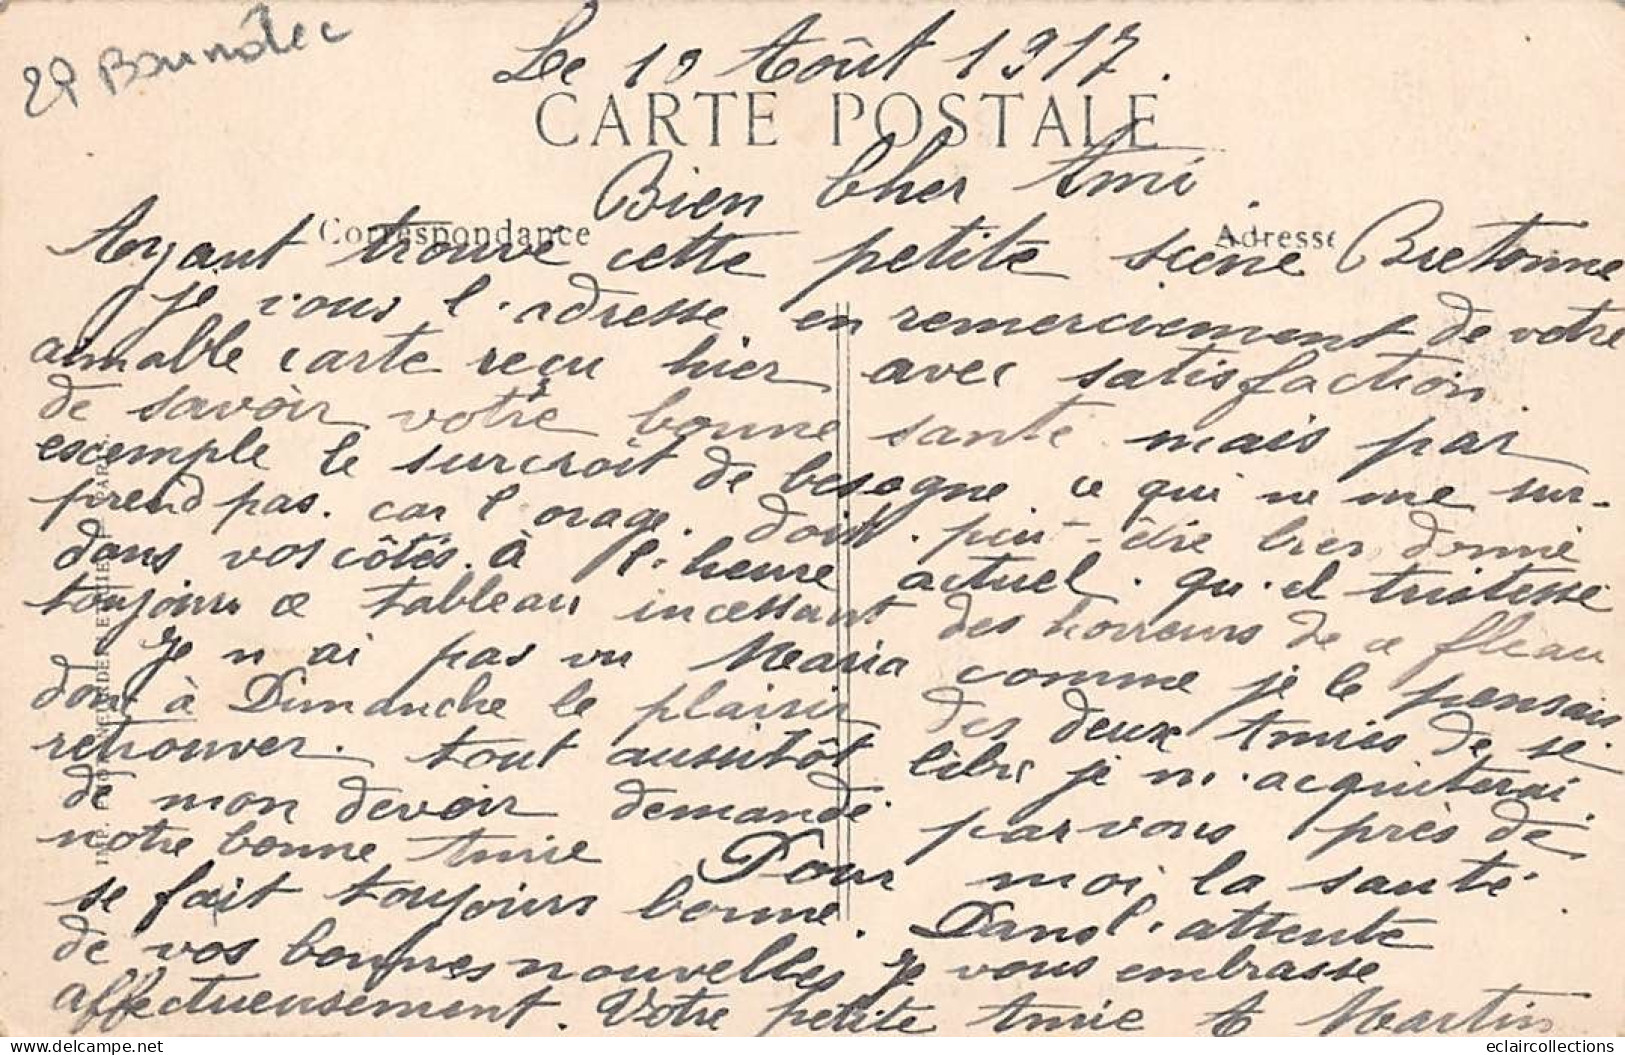 29 Bannalec
Le 10 Août 1917.
CARTE POSTALE
Bien Cher Ami.
Correspondance
Adresse
Ayant trouvé cette petite scène Bretonne
je vous l'adresse en remerciement de votre
aimable carte reçu hier avec satisfaction
de savoir votre bonne santé mais par
escemple le surcroît de besogne ce qui ne me sur-
prend pas. car l'orage. doit. peut-être bien donné
dans vos côtés. à l'heure actuel. qu'il tristesse
toujours ce tableau incessant des horreurs de ce fleau
Je n'ai pas vu Maria comme je le pensais
donc à Dimanche le plaisir des deux Amies de se
retrouver. tout aussitôt libre je m'acquiterai
de mon devoir demandé par vous près de
notre bonne Amie Pour moi la santé
se fait toujours bonne. Dans l'attente
de vos bonnes nouvelles Je vous embrasse
affectueusement. Votre petite Amie A Martin
eclaircollections